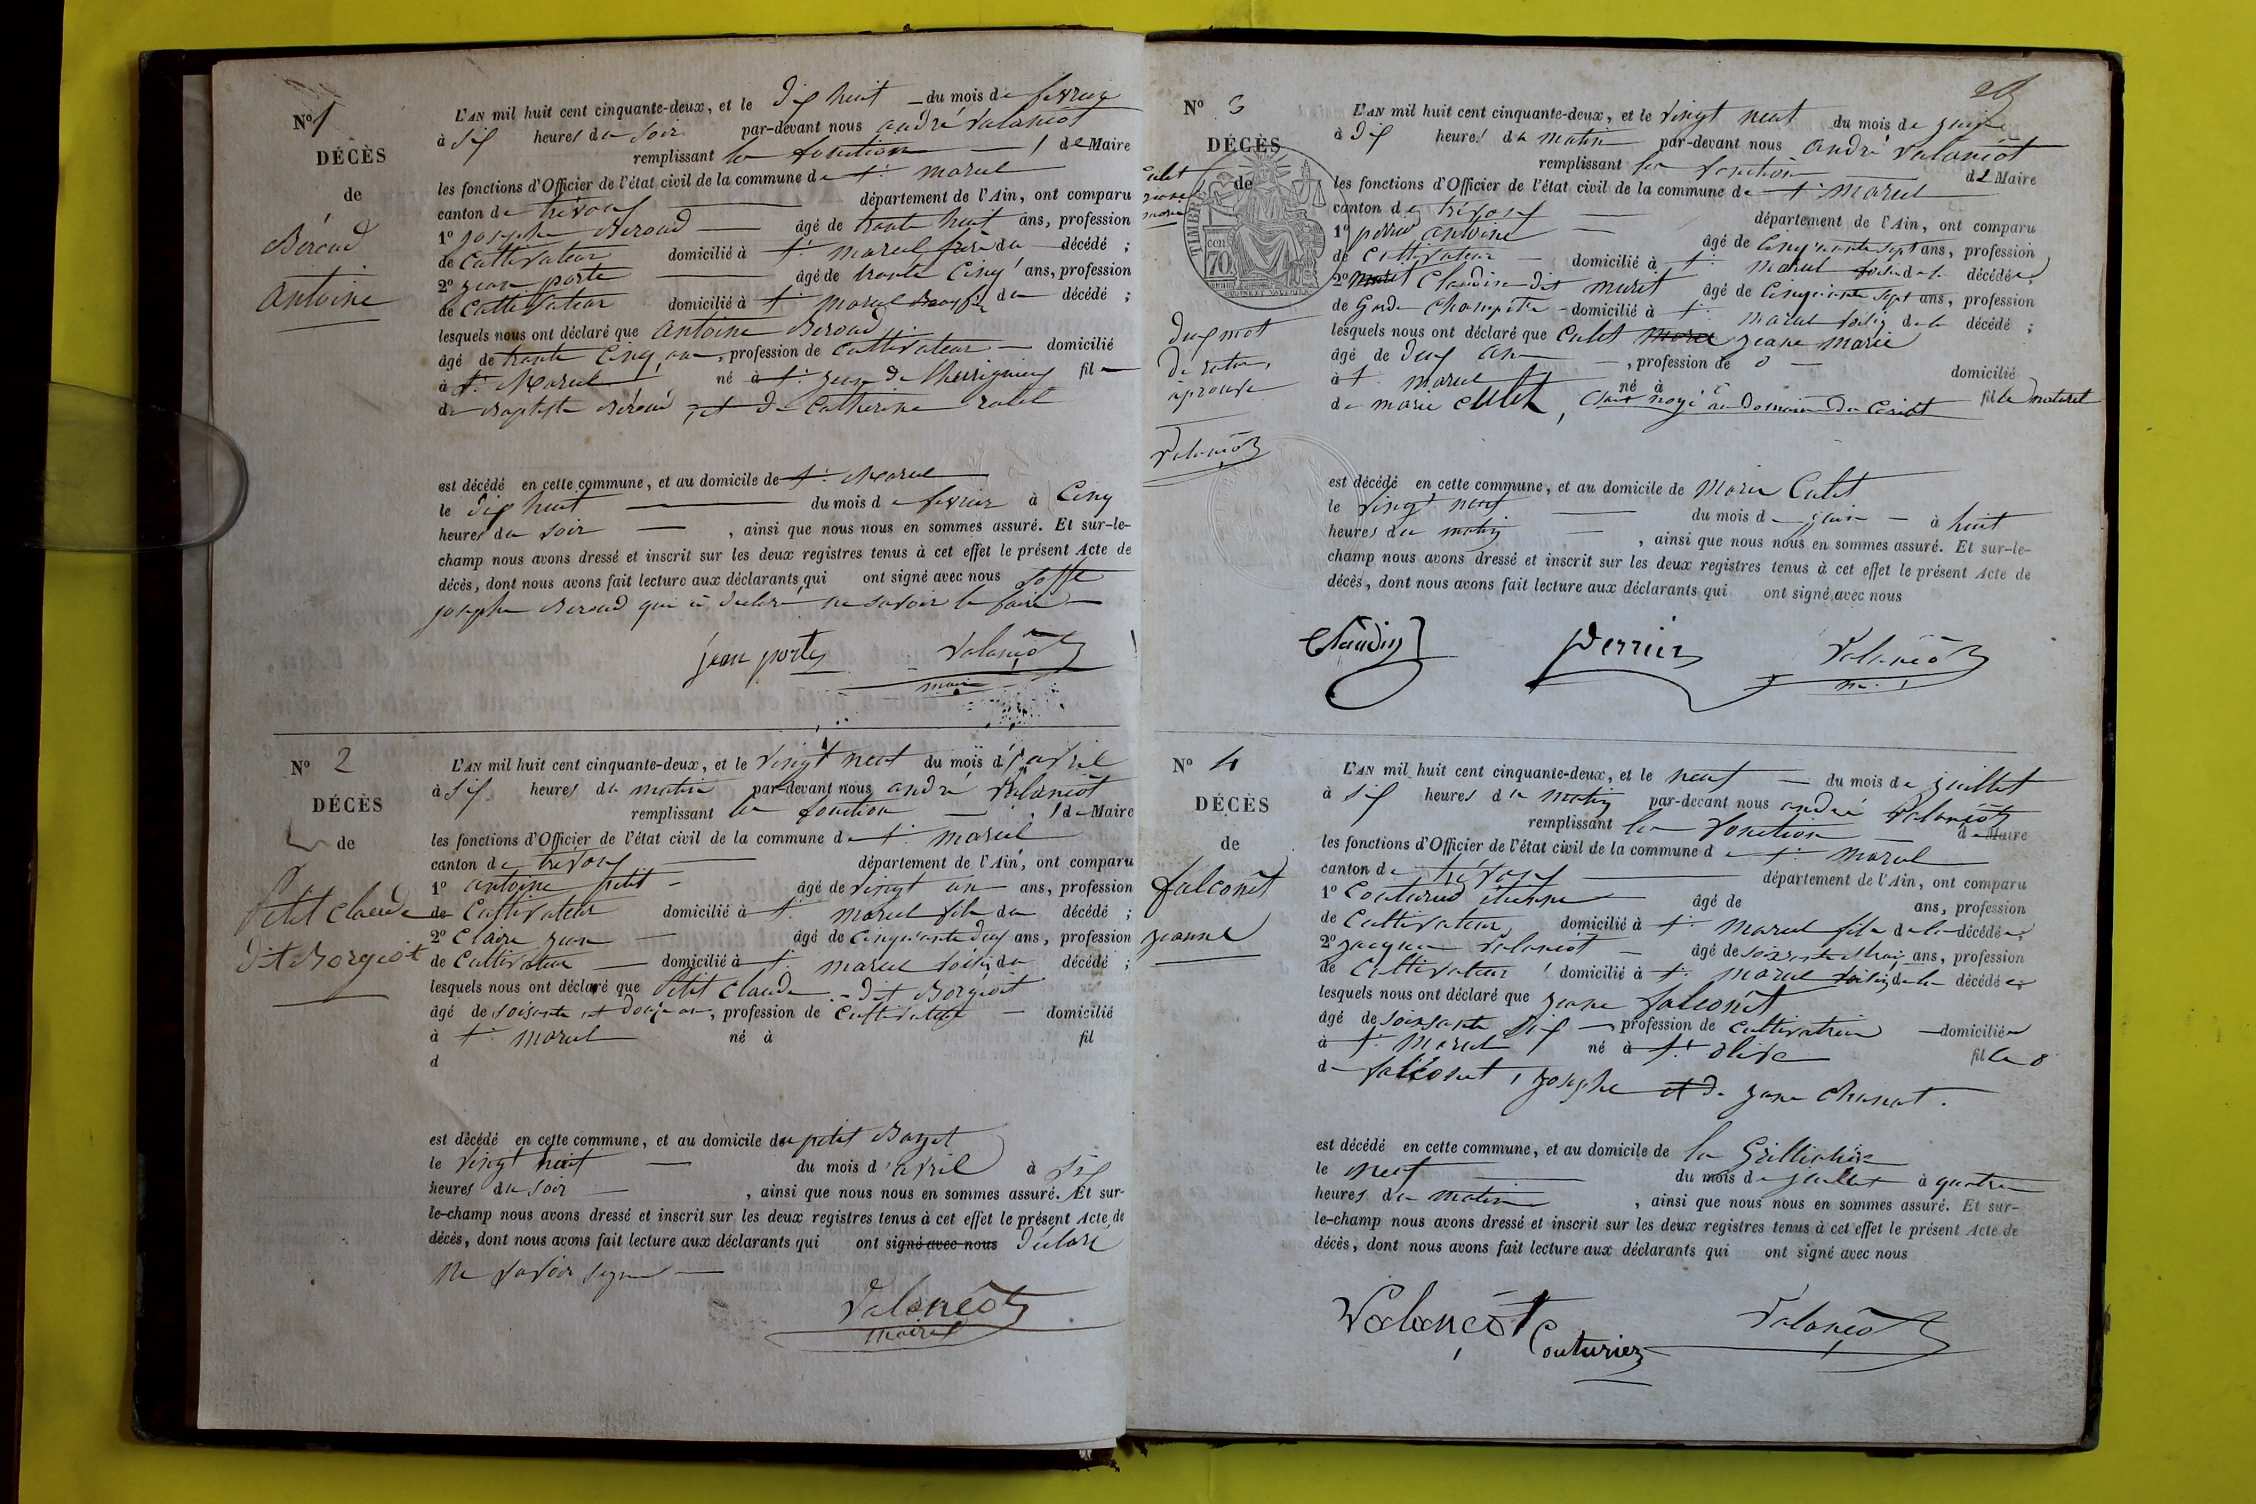 N° 1
DÉCÈS
de
Beroud
Antoine
L'AN mil huit cent cinquante-deux, et le dix huit du mois de fevrier
à six heures du soir par-devant nous andré Valançot
remplissant la fonction de Maire
les fonctions d'Officier de l'état civil de la commune de St. marcel
canton de trévoux département de l'Ain, ont comparu
1° josephe Beroud âgé de trante huit ans, profession
de Cultivateur domicilié à St. marcel frère du décédé ;
2° jean porte âgé de trante Cinq ans, profession
de Cultivateur domicilié à St. marcel du décédé ;
lesquels nous ont déclaré que antoine Beroud
âgé de trante Cinq ans, profession de Cultivateur domicilié
à St. Marcel né à St. jean de thurigneux fil
de Baptiste Béroud et de Catherine rolet
est décédé en cette commune, et au domicile de St. Marcel
le dix huit du mois de fevrier à Cinq
heures du soir, ainsi que nous nous en sommes assuré. Et sur-le-
champ nous avons dressé et inscrit sur les deux registres tenus à cet effet le présent Acte de
décès, dont nous avons fait lecture aux déclarants qui ont signé avec nous
josephe Beroud qui a declaré ne savoir le faire
jean porte Valançot
maire
N° 2
DÉCÈS
de
Petit Claude
Dit Borgeot
L'AN mil huit cent cinquante-deux, et le vingt neuf du mois d'avril
à six heures du matin par-devant nous andré Valançot
remplissant la fonction de Maire
les fonctions d'Officier de l'état civil de la commune de St. marcel
canton de trévoux département de l'Ain, ont comparu
1° antoine petit âgé de vingt un ans, profession
de Cultivateur domicilié à St. marcel fils du décédé ;
2° Claire jean âgé de Cinquante deux ans, profession
de Cultivateur domicilié à St. marcel voisin du décédé ;
lesquels nous ont déclaré que Petit Claude dit Borgeot
âgé de soisante et douze ans, profession de Cultivateur domicilié
à St. marcel né à fil
d
est décédé en cette commune, et au domicile du petit
le vingt huit du mois d'avril à six
heures du soir, ainsi que nous nous en sommes assuré. Et sur-
le-champ nous avons dressé et inscrit sur les deux registres tenus à cet effet le présent Acte de
décès, dont nous avons fait lecture aux déclarants qui ont signé avec nous déclaré
ne savoir signer
Valançot
maire
29
N° 3
DÉCÈS
de
Culet
jeane
marie
TIMBRE
70 cen
deux mot
de
aprouvé
Valançot
L'AN mil huit cent cinquante-deux, et le vingt neuf du mois de juin
à dix heures du matin par-devant nous andré Valançot
remplissant la fonction de Maire
les fonctions d'Officier de l'état civil de la commune de St. marcel
canton de trévoux département de l'Ain, ont comparu
1° perrier antoine âgé de Cinquante sept ans, profession
de Cultivateur domicilié à St. marcel voisin de la décédée ;
2° Claudin dit muret âgé de Cinquante sept ans, profession
de Garde Champêtre domicilié à St. marcel voisin de la décédé ;
lesquels nous ont déclaré que Culet jeane marie
âgé de deux ans, profession de 0 domicilié
à St. marcel né à fille naturel
de marie Culet, noyé au Domaine du
est décédé en cette commune, et au domicile de Marie Culet
le vingt neuf du mois de juin à huit
heures du matin, ainsi que nous nous en sommes assuré. Et sur-le-
champ nous avons dressé et inscrit sur les deux registres tenus à cet effet le présent Acte de
décès, dont nous avons fait lecture aux déclarants qui ont signé avec nous
Claudin Perrier Valançot
N° 4
DÉCÈS
de
falconet
jeanne
L'AN mil huit cent cinquante-deux, et le neuf du mois de juillet
à six heures du matin par-devant nous andré Valançot
remplissant la fonction de Maire
les fonctions d'Officier de l'état civil de la commune de St. marcel
canton de trévoux département de l'Ain, ont comparu
1° étienne âgé de ans, profession
de Cultivateur domicilié à St. marcel fils de la décédée ;
2° jacques Valançot âgé de soixante trois ans, profession
de Cultivateur domicilié à St. marcel voisin de la décédée
lesquels nous ont déclaré que jeane falconet
âgé de soissante dix profession de Cultivatrice domiciliée
à St. Marcel né à St. olive fille
de falconet, josephe et de jane Chanat.
est décédé en cette commune, et au domicile de la
le neuf du mois de juillet à quatre
heures du matin, ainsi que nous nous en sommes assuré. Et sur-
le-champ nous avons dressé et inscrit sur les deux registres tenus à cet effet le présent Acte de
décès, dont nous avons fait lecture aux déclarants qui ont signé avec nous
Valançot Couturier Valançot